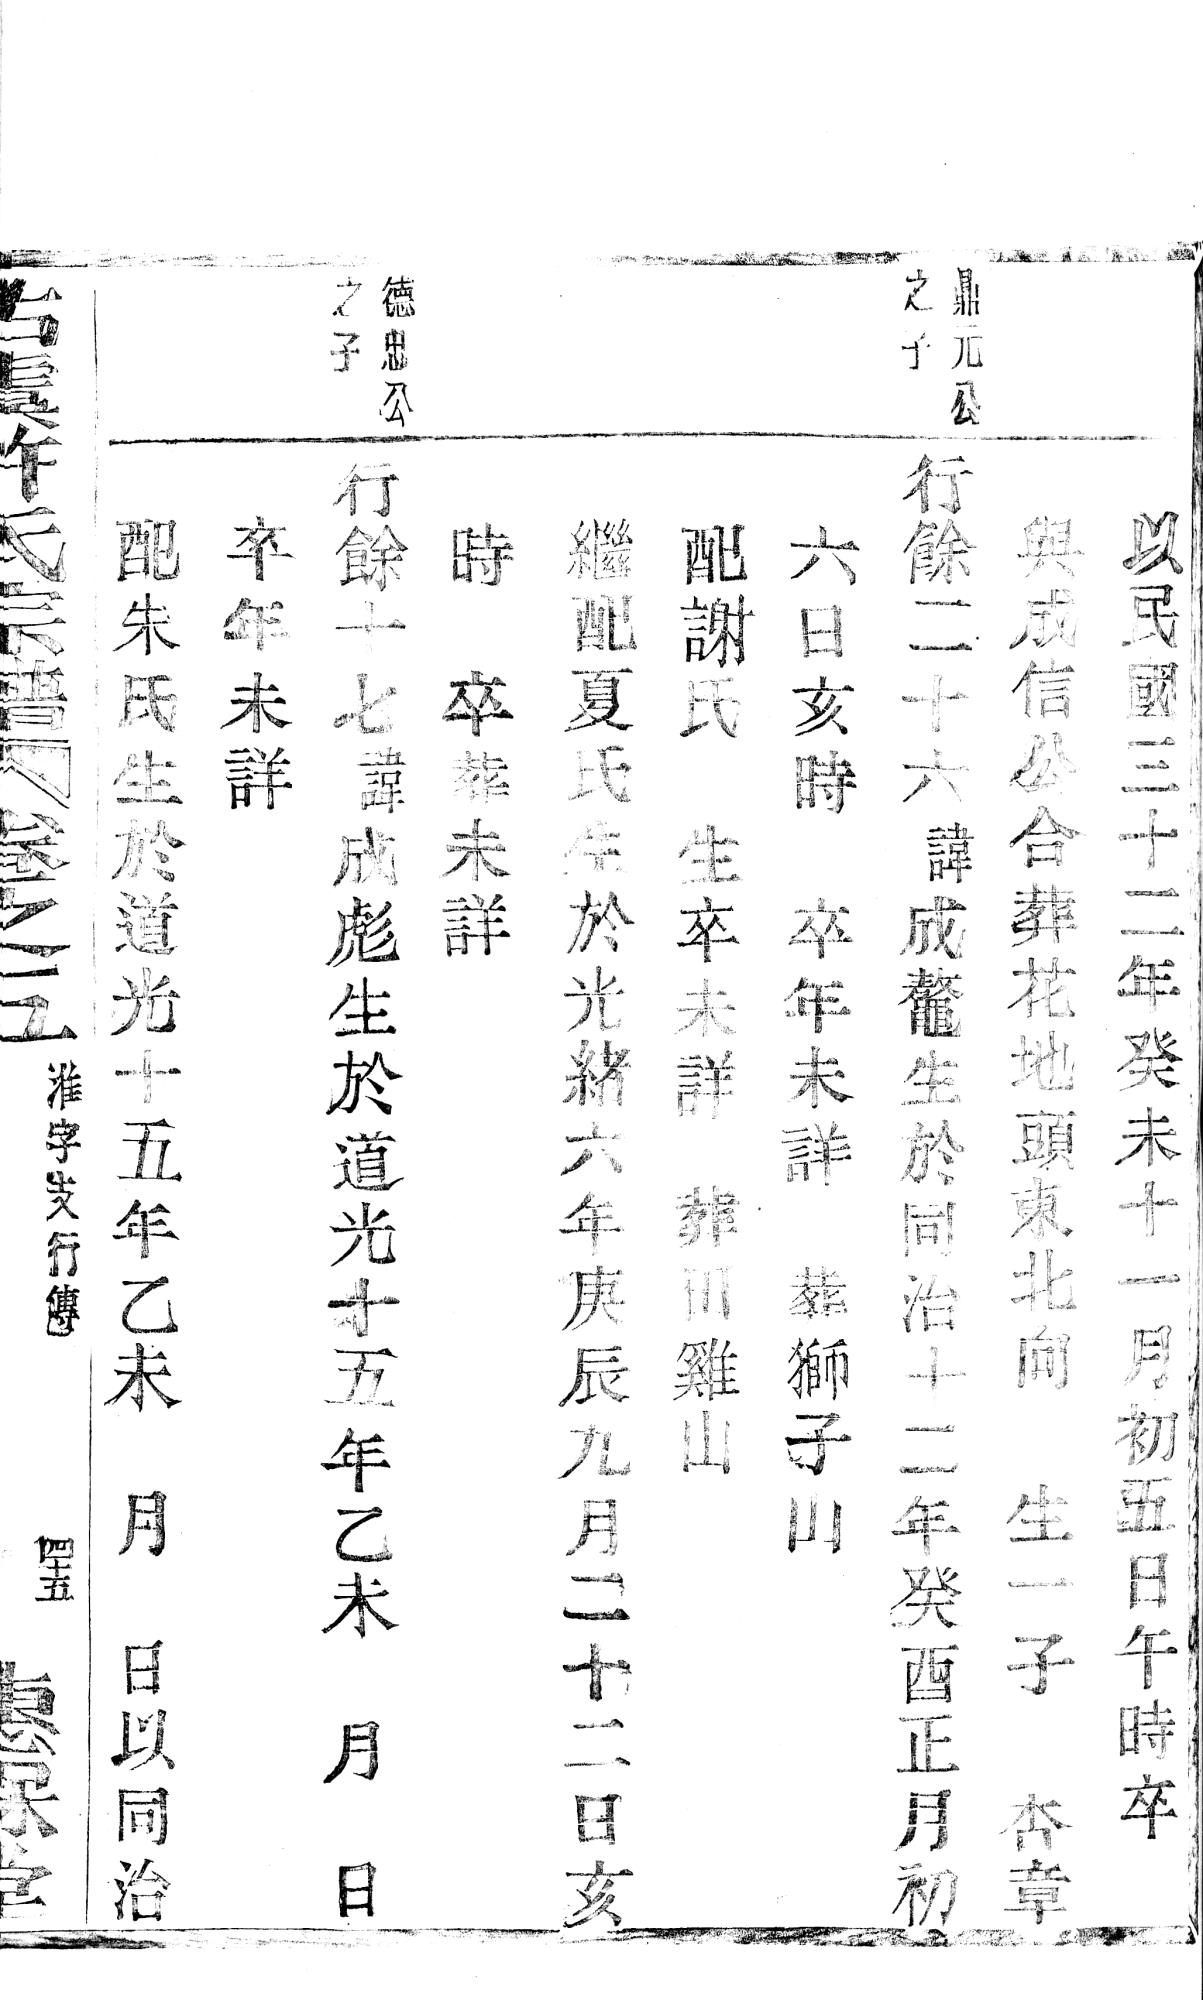 以民國三十二年癸未十一月初五日午時卒
與成信公合葬花地頭東北向 生一子 杏章
鼎元公
之子
行餘二十六諱成鼇生於同治十二年癸酉正月初
六日亥時 卒年未詳 葬獅子山
配謝氏 生卒未詳 葬田雞山
繼配夏氏生於光緒六年庚辰九月二十二日亥
時 卒葬未詳
德忠公
之子
行餘十七諱成彪生於道光十五年乙未 月 日
卒年未詳
配朱氏生於道光十五年乙未 月 日以同治
古虞許氏宗譜 卷之五
淮字支行傳
四十五
惠保堂